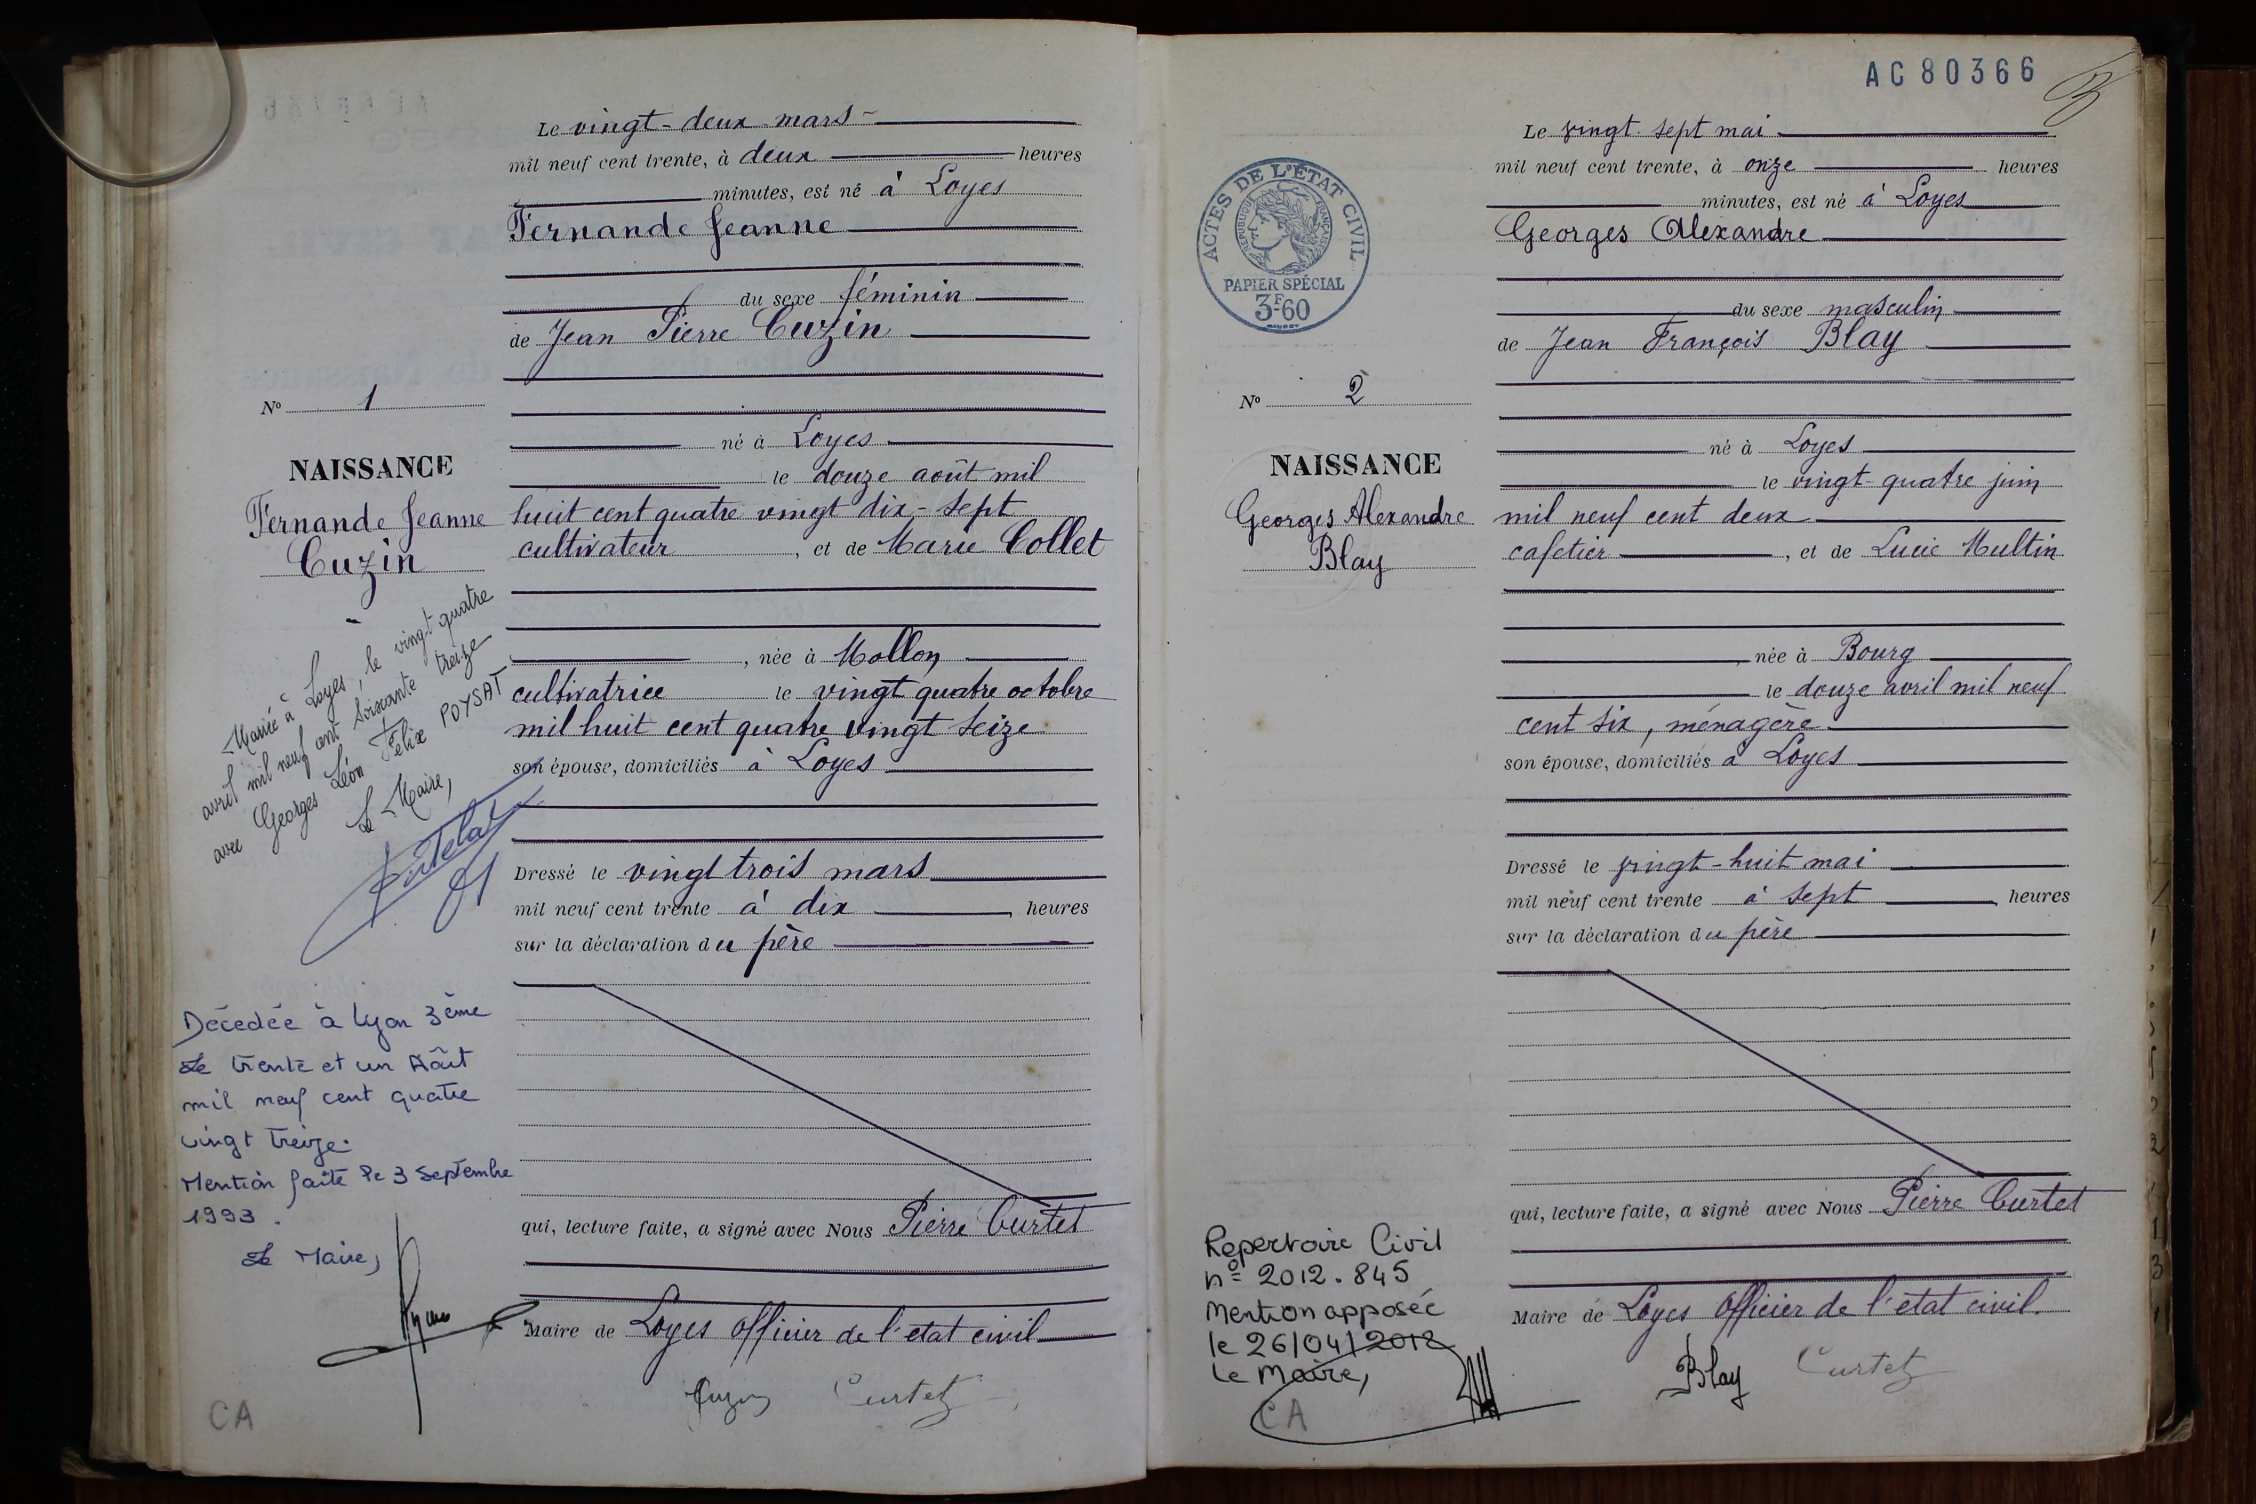 Le vingt-deux mars
mil neuf cent trente, à deux heures
minutes, est né à Loyes
Fernande Jeanne
du sexe féminin
de Jean Pierre Cuzin
né à Loyes
le douze août mil
huit cent quatre vingt dix-sept
cultivateur, et de Marie Collet
, née à Mollon
cultivatrice le vingt quatre octobre
mil huit cent quatre vingt seize
son épouse, domiciliés à Loyes
Dressé le vingt trois mars
mil neuf cent trente à dix heures
sur la déclaration du père
qui, lecture faite, a signé avec Nous Pierre Curtet
Maire de Loyes officier de l'état civil
Curtet
No 1
NAISSANCE
Fernande Jeanne
Cuzin
Mariée à Loyes, le vingt quatre
avril mil neuf cent soixante treize
avec Georges Léon Félix POYSAT
Le Maire,
Décedée à Lyon 3ème
Le trente et un Août
mil neuf cent quatre
vingt treize.
Mention faite le 3 Septembre
1993.
Le Maire,
CA
AC80366
Le vingt-sept mai
mil neuf cent trente, à onze heures
minutes, est né à Loyes
Georges Alexandre
du sexe masculin
de Jean François Blay
né à Loyes
le vingt-quatre juin
mil neuf cent deux
cafetier, et de Lucie Multin
, née à Bourg
le douze avril mil neuf
cent six, ménagère
son épouse, domiciliés à Loyes
Dressé le vingt-huit mai
mil neuf cent trente à sept heures
sur la déclaration du père
qui, lecture faite, a signé avec Nous Pierre Curtet
Maire de Loyes Officier de l'état civil.
Blay Curtet
ACTES DE L'ÉTAT CIVIL
REPUBLIQUE FRANÇAISE
PAPIER SPÉCIAL
3F60
No 2
NAISSANCE
Georges Alexandre
Blay
Repertoire Civil
no 2012.845
Mention apposée
le 26/04/2012
Le Maire,
CA